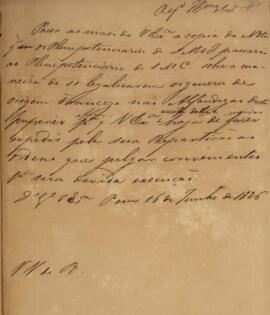 Passo as mãos de V Exª a copia da Nota
q̃ os Plenipotenciarios de S.M.I. passarão
ao Plenipotenciario de S.M.C. sobre a ma
neira de se legalisarem os generos de
origem Franceza nas Alfandegas deste
Imperio pª q̃ V Exª haja de fazer
expedir pela sua Repartição as
ordens que julgar convenientes
pª sua devida execução.
Dˢ gᵉ V Exª Paço 16 de Junho de 1826